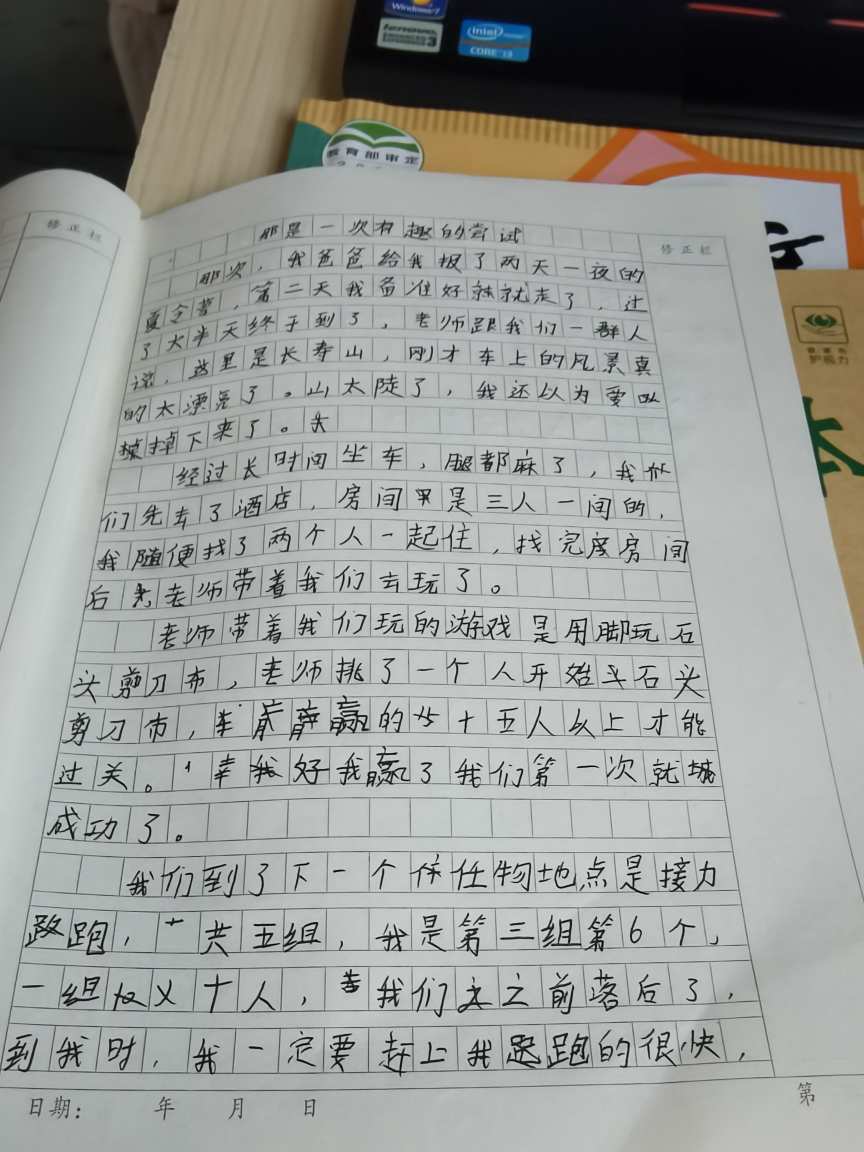 Windows 7
Lenovo
ENHANCED
EXPERIENCE 3
intel
CORE i3
教育部审定
护视力
本
修正栏
修正栏
那是一次有趣的尝试
那次，我爸爸给我报了两天一夜的
夏令营，第二天我备准好就走了，过
了大半天终于到了，老师跟我们一群人
说，这里是长寿山，刚才车上的风景真
的太漂亮了。山太陡了，我还以为要
掉下来了。
经过长时间坐车，腿都麻了，我
们先去了酒店，房间是三人一间的，
我随便找了两个人一起住，找完房间
后老师带着我们去玩了。
老师带着我们玩的游戏是用脚玩石
头剪刀布，老师挑了一个人开始石头
剪刀布，赢的十五人以上才能
过关。幸好我赢了我们第一次就
成功了。
我们到了下一个任物地点是接力
跑，一共五组，我是第三组第6个，
一组十人，我们之前落后了，
到我时，我一定要赶上我跑的很快，
日期： 年 月 日
第